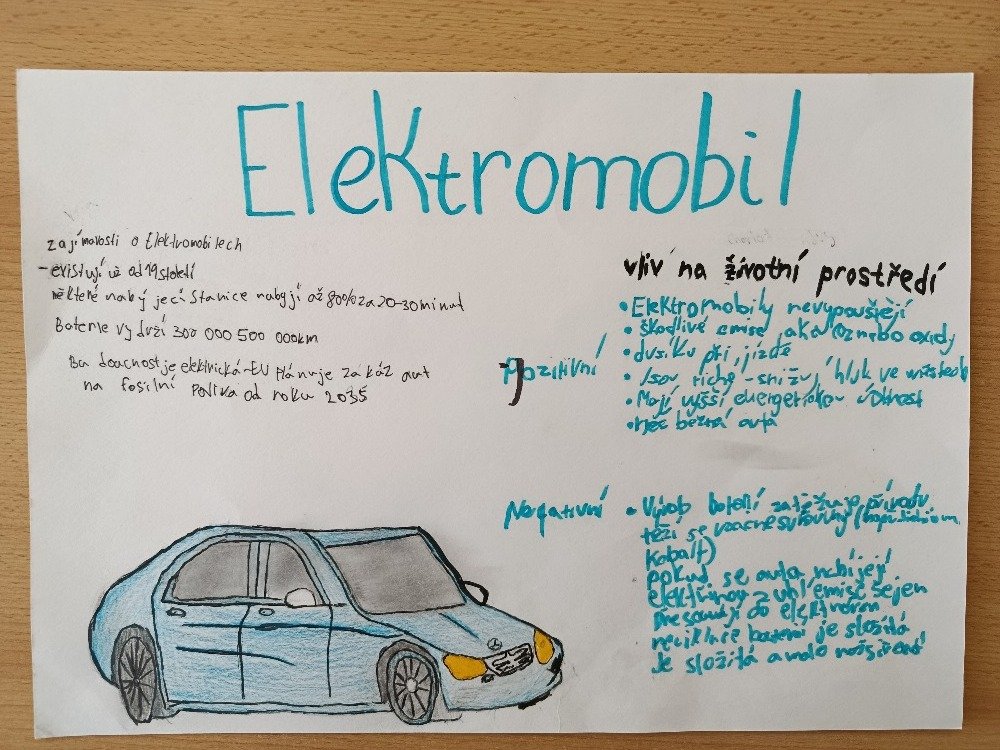 Elektromobil
zajímavosti o Elektromobilech
-existují už od 19 století
některé nabý jecí stanice nabyjí až 80% za 20-30minut
Baterie vy drží 300 000 500 000km
Bu doucnost je elektrická-EU plánuje zákáz aut
na fosilní paliva od roku 2035
vliv na životní prostředí
Pozitivní
• Elektromobily nevypouštějí
• škodlivé emise jako nebo oxidy
• dusíku při jízdě
• Jsou tiché - snižují hluk ve městech
• Mají vyšší energetickou účinnost
• než běžná auta
Negativní
• Výrob baterií zatěžuje přírodu
těží se vzácné suroviny (např. lithium
kobalt)
pokud se auta nabíjejí
elektřinou z uhlí emise se jen
přesouvají do elektráren
recyklace baterií je složitá
Je složitá a málo rozšířená